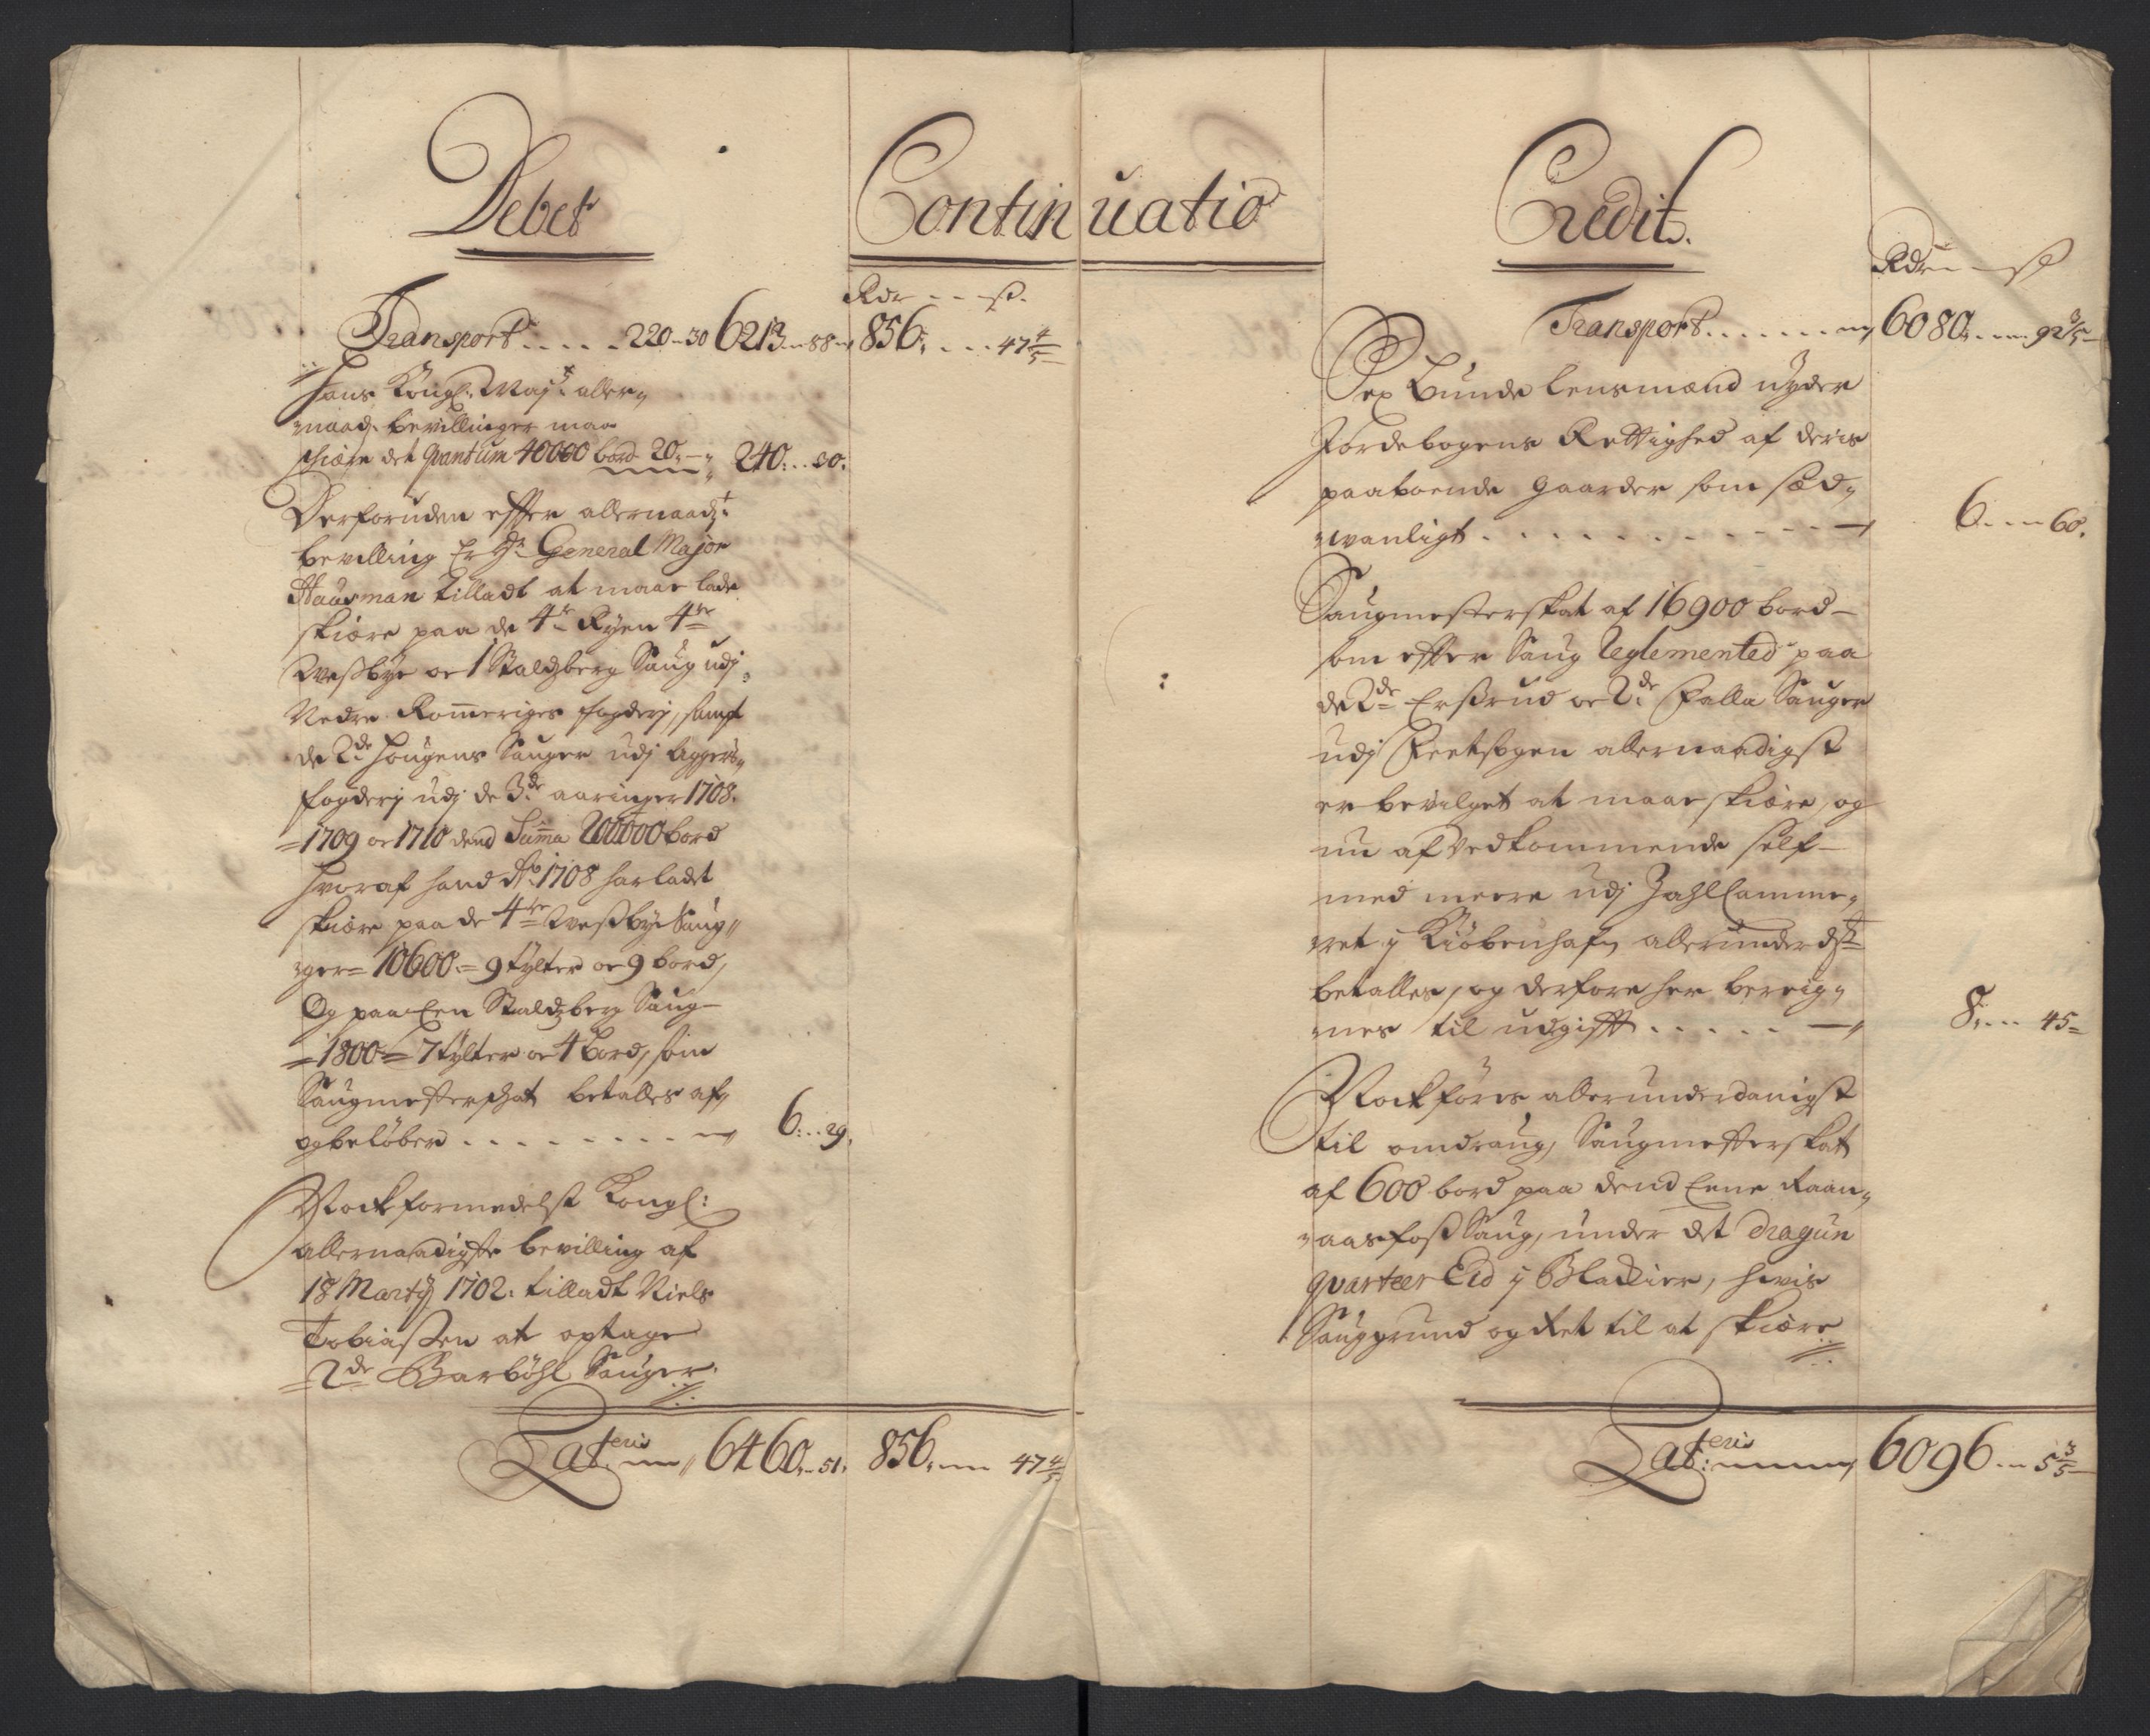 Debet
Continuatio
Rdr - - ß.
Transport . . . . . 220-30 6213 - 88 - 856 . . . 47 4/5
Hans Kongl: Maÿt: aller-
naad: bevillinger maa
schiære det qvantum 40000 bord 20 - 240: . . 30:
Derforuden effter allernaad:
bevilling Er Hr General Major
Hausman tilladt at maae lade
skiære paa de 4re Ryen 4re
Westbÿe oc 1 Staldzberg Saug udj
Nedre Rommeriges fogderj, sampt
de 2de Hougens Sauger udj Aggers-
fogderj udj de 3de aaringer 1708.
1709 oc 1710 dend Suma 200000 bord
hvoraf hand Ao 1708 har ladet
skiære paa de 4re Westbÿe Saug-
ger = 10600 = 9 tylter oc 9 bord,
Og paa Een Staldzberg Saug
= 1800 = 7 tylter oc 4 bord, som
Saugmesterschat betalles af,
og beløber . . . . . . . . 6: . . 29.
Nock formedelst Kongl:
allernaadigste bevilling af
18 Martÿ 1702. tilladt Niels
Tobiassen at optage
2de Barbøhl Sauger.
Lat:eris 6460 - 51. 856. - 47 4/5
Credit.
Rdr - - ß
Transport . . . . . . . 6080 . . . 92 3/5
Sex bunde lensmænd nyder
Jordebogens Rettighed af deris
paaboende gaarder som sæd-
wanligt . . . . . . . . . 6 . . . 60.
Saugmesterskat af 16900 bord
som effter Saug Reglemented paa
de 2de Erstrud oc 2de Falla Sauger
udj Feetsogen allernaadigst
er bevilget at maae skiære, og
nu af vedkommende self
med meere udj Zahlkamme-
ret j Kiøbenhafn allerunderdst
betalles, og derfore her bereig-
nes til udgifft . . . . . 8. . . . 45
Nock føres allerunderdanigst
til omdraug, Saugmesterskat
af 600 bord paa dend Eene Raan-
aasfoss Saug, under det dragun
qvarteer Eid j Blackier, hvis
Sauggrund og Ret til at skiære
Lat:eris 6096 . . 5 3/5